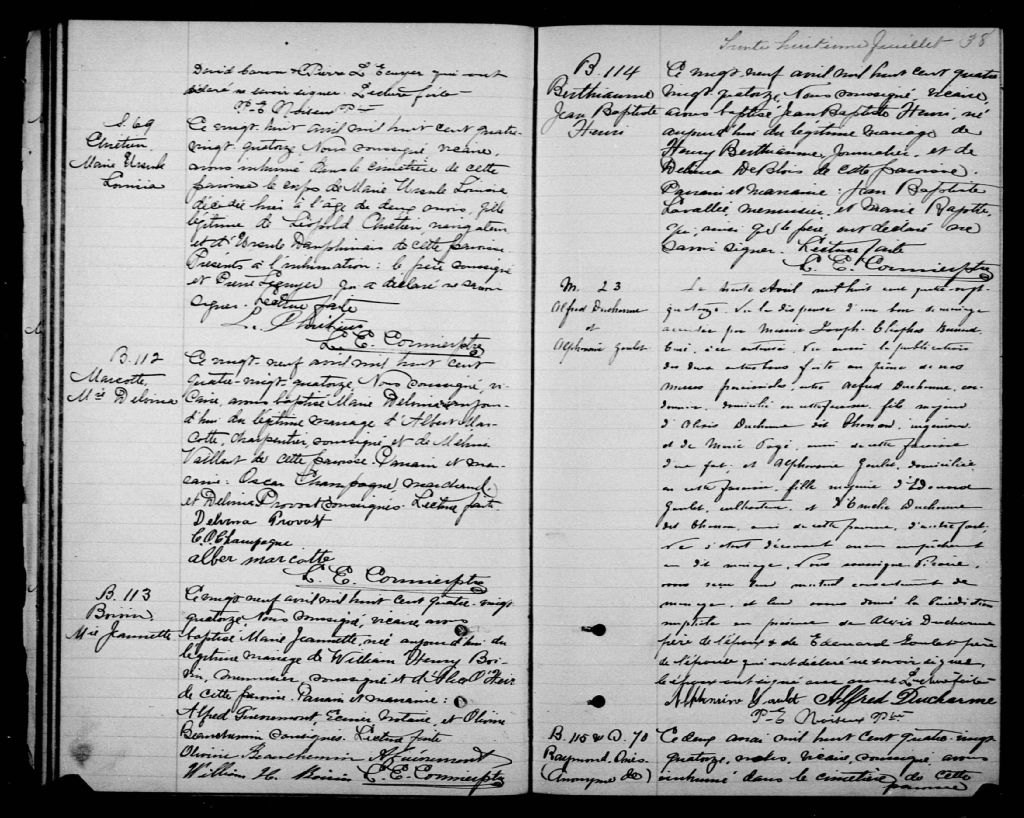 David Caron & Pierre L'Ecuyer qui ont
déclaré ne savoir signer. Lecture faite
P. E. Noiseux Ptre
S. 69
Chrétien
Marie Ursule
Louisia
Ce vingt huit avril mil huit cent quatre-
vingt quatorze Nous soussigné vicaire,
avons inhumé dans le cimetière de cette
paroisse le corps de Marie Ursule Louisia
décédée hier à l'âge de deux mois, fille
légitime de Léopold Chrétien, navigateur
et d'Ursule Dauphinais de cette paroisse.
Présents à l'inhumation: le père soussigné
et Pierre Lécuyer qui a déclaré ne savoir
signer. Lecture faite
L. E. Cormier ptre
B. 112
Marcotte
Mie Delvina
Ce vingt-neuf avril mil huit cent
quatre-vingt-quatorze Nous soussigné, vi-
caire, avons baptisé Marie Delvina née aujour-
d'hui du légitime mariage d'Albert Mar-
cotte, charpentier, soussigné et de
Vaillant de cette paroisse. Parrain et mar-
raine: Oscar Champagne, marchand,
et Delvina Provost soussignés. Lecture faite
Delvina Provost
C. O. Champagne
alber marcotte
L. E. Cormier ptre
B. 113
Boivin
Mie Jeannette
Ce vingt neuf avril mil huit cent quatre-vingt
quatorze, Nous soussigné, vicaire avons
baptisé Marie Jeannette, née aujourd'hui du
légitime mariage de William Henry Boi-
vin, menuisier, soussigné et d'
de cette paroisse. Parrain et marraine:
Alfred Guénemont, Ecuier Notaire, et Olivine
Beauchemin soussignés. Lecture faite
Olivine Beauchemin A Guénemont
William H. Boivin L. E. Cormier ptre
Trente huitième feuillet 38
B. 114
Berthiaume
Jean Baptiste
Henri
Ce vingt-neuf avril mil huit cent quatre
vingt quatorze, Nous soussigné, vicaire,
avons baptisé Jean Baptiste Henri, né
aujourd'hui du légitime mariage de
Henry Berthiaume, Journalier, et de
Delima DeBlois de cette paroisse.
Parrain et marraine: Jean Baptiste
Lavallée, menuisier, et Marie
qui, ainsi que le père, ont déclaré ne
savoir signer. Lecture faite
L. E. Cormier ptre
M. 23
Alfred Ducharme
et
Alphonsine Goulet
Le trente Avril mil huit cent quatre-vingt-
quatorze. Vu la dispense d'un ban de mariage
accordée par Messire Joseph
Curé, à ce autorisé. Vu aussi la publication
des deux autres bans faite au prône de nos
messes paroissiales, entre Alfred Ducharme, cor-
donnier, domicilié en cette paroisse, fils majeur
d'Alexis Ducharme dit ingénieur
et de Marie Pagé, aussi de cette paroisse
d'une part; et Alphonsine Goulet, domiciliée
en cette paroisse, fille mineure d'Edouard
Goulet, cultivateur, et d'Emélie Ducharme
dit aussi de cette paroisse, d'autre part;
Ne s'étant découvert aucun empêchement
au dit mariage, Nous soussigné Vicaire,
avons reçu leur mutuel consentement de
mariage, et leur avons donné la Bénédiction
nuptiale en présence de Alexis Ducharme
père de l'époux & de Edouard Goulet père
de l'épouse qui ont déclaré ne savoir signer,
les époux ont signé avec nous Lecture faite
Alphonsine Goulet Alfred Ducharme
P. E. Noiseux Ptre
B. 115 & S. 70
Raymond
(Anonyme de)
Ce deux mai mil huit cent quatre-vingt
quatorze, nous, vicaire, soussigné, avons
inhumé dans le cimetière de cette
paroisse